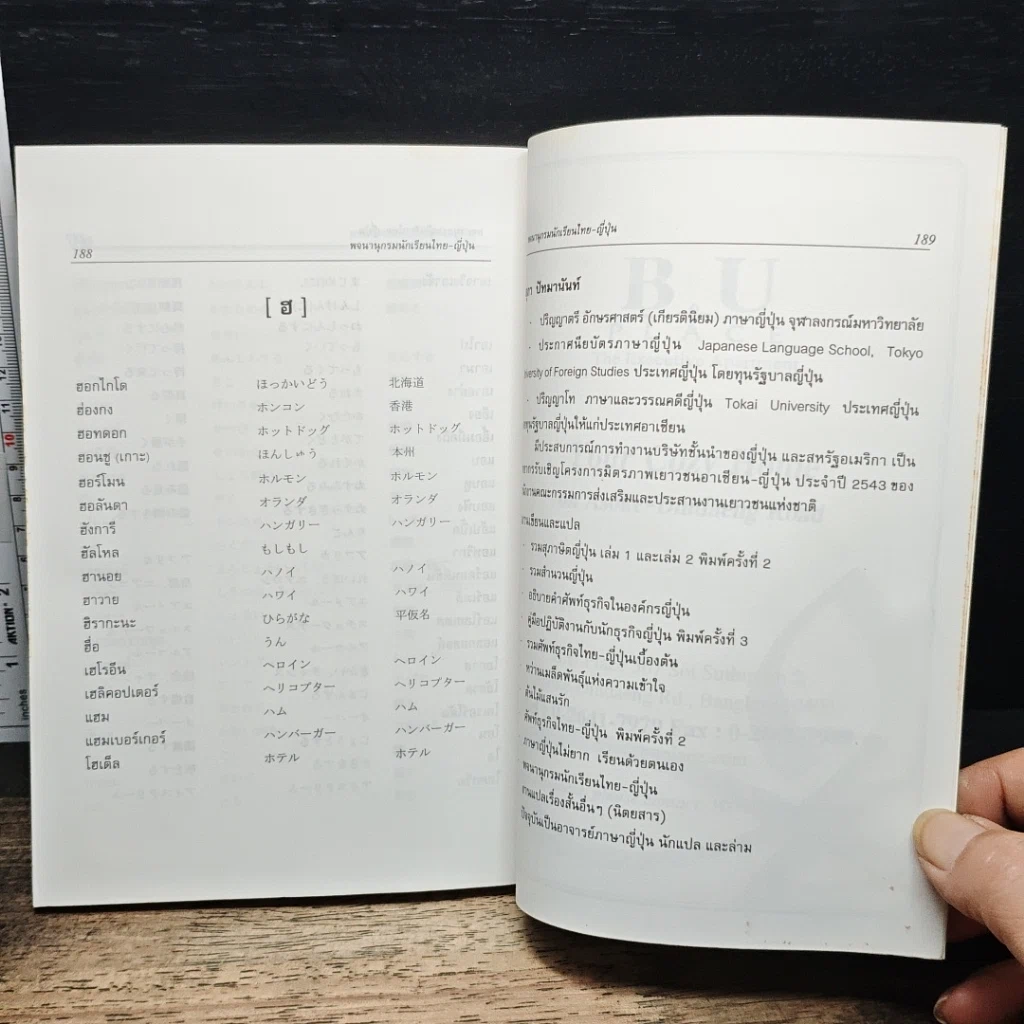 188
พจนานุกรมนักเรียนไทย-ญี่ปุ่น
[ ฮ ]
ฮอกไกโด ほっかいどう 北海道
ฮ่องกง ホンコン 香港
ฮอทดอก ホットドッグ ホットドッグ
ฮอนชู (เกาะ) ほんしゅう 本州
ฮอร์โมน ホルモン ホルモン
ฮอลันดา オランダ オランダ
ฮังการี ハンガリー ハンガリー
ฮัลโหล もしもし
ฮานอย ハノイ ハノイ
ฮาวาย ハワイ ハワイ
ฮิรากะนะ ひらがな 平仮名
ฮื่อ うん
เฮโรอีน ヘロイン ヘロイン
เฮลิคอปเตอร์ ヘリコプター ヘリコプター
แฮม ハム ハム
แฮมเบอร์เกอร์ ハンバーガー ハンバーガー
โฮเต็ล ホテル ホテル
พจนานุกรมนักเรียนไทย-ญี่ปุ่น
189
ปัทมานันท์
· ปริญญาตรี อักษรศาสตร์ (เกียรตินิยม) ภาษาญี่ปุ่น จุฬาลงกรณ์มหาวิทยาลัย
· ประกาศนียบัตรภาษาญี่ปุ่น Japanese Language School, Tokyo
of Foreign Studies ประเทศญี่ปุ่น โดยทุนรัฐบาลญี่ปุ่น
· ปริญญาโท ภาษาและวรรณคดีญี่ปุ่น Tokai University ประเทศญี่ปุ่น
ทุนรัฐบาลญี่ปุ่นให้แก่ประเทศอาเซียน
มีประสบการณ์การทำงานบริษัทชั้นนำของญี่ปุ่น และสหรัฐอเมริกา เป็น
รับเชิญโครงการมิตรภาพเยาวชนอาเซียน-ญี่ปุ่น ประจำปี 2543 ของ
คณะกรรมการส่งเสริมและประสานงานเยาวชนแห่งชาติ
เขียนและแปล
รวมสุภาษิตญี่ปุ่น เล่ม 1 และเล่ม 2 พิมพ์ครั้งที่ 2
รวมสำนวนญี่ปุ่น
อธิบายคำศัพท์ธุรกิจในองค์กรญี่ปุ่น
คู่มือปฏิบัติงานกับนักธุรกิจญี่ปุ่น พิมพ์ครั้งที่ 3
รวมศัพท์ธุรกิจไทย-ญี่ปุ่นเบื้องต้น
หว่านเมล็ดพันธุ์แห่งความเข้าใจ
ต้นไม้แสนรัก
ศัพท์ธุรกิจไทย-ญี่ปุ่น พิมพ์ครั้งที่ 2
ภาษาญี่ปุ่นไม่ยาก เรียนด้วยตนเอง
พจนานุกรมนักเรียนไทย-ญี่ปุ่น
งานแปลเรื่องสั้นอื่นๆ (นิตยสาร)
ปัจจุบันเป็นอาจารย์ภาษาญี่ปุ่น นักแปล และล่าม